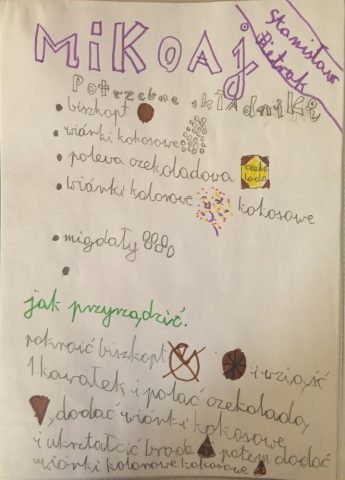 MiKOAj
Stanisław
Pietrak
Potrzebne składniki
biszkopt
wiórki kokosowe
polewa czekoladowa
czeko
lada
wiórki kolorowe kokosowe
migdały
jak przyrządzić.
pokroić biszkopt i wziąść
1 kawałek i polać czekoladą
, dodać wiórki kokosowe
i ukształcić brodę potem dodać
wiórki kolorowe kokosowe